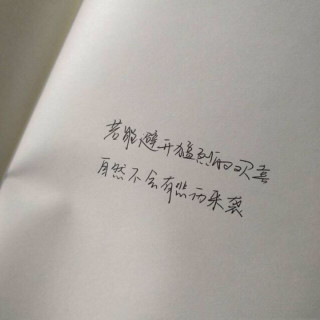 若能避开猛烈的欢喜
自然不会有悲的来袭